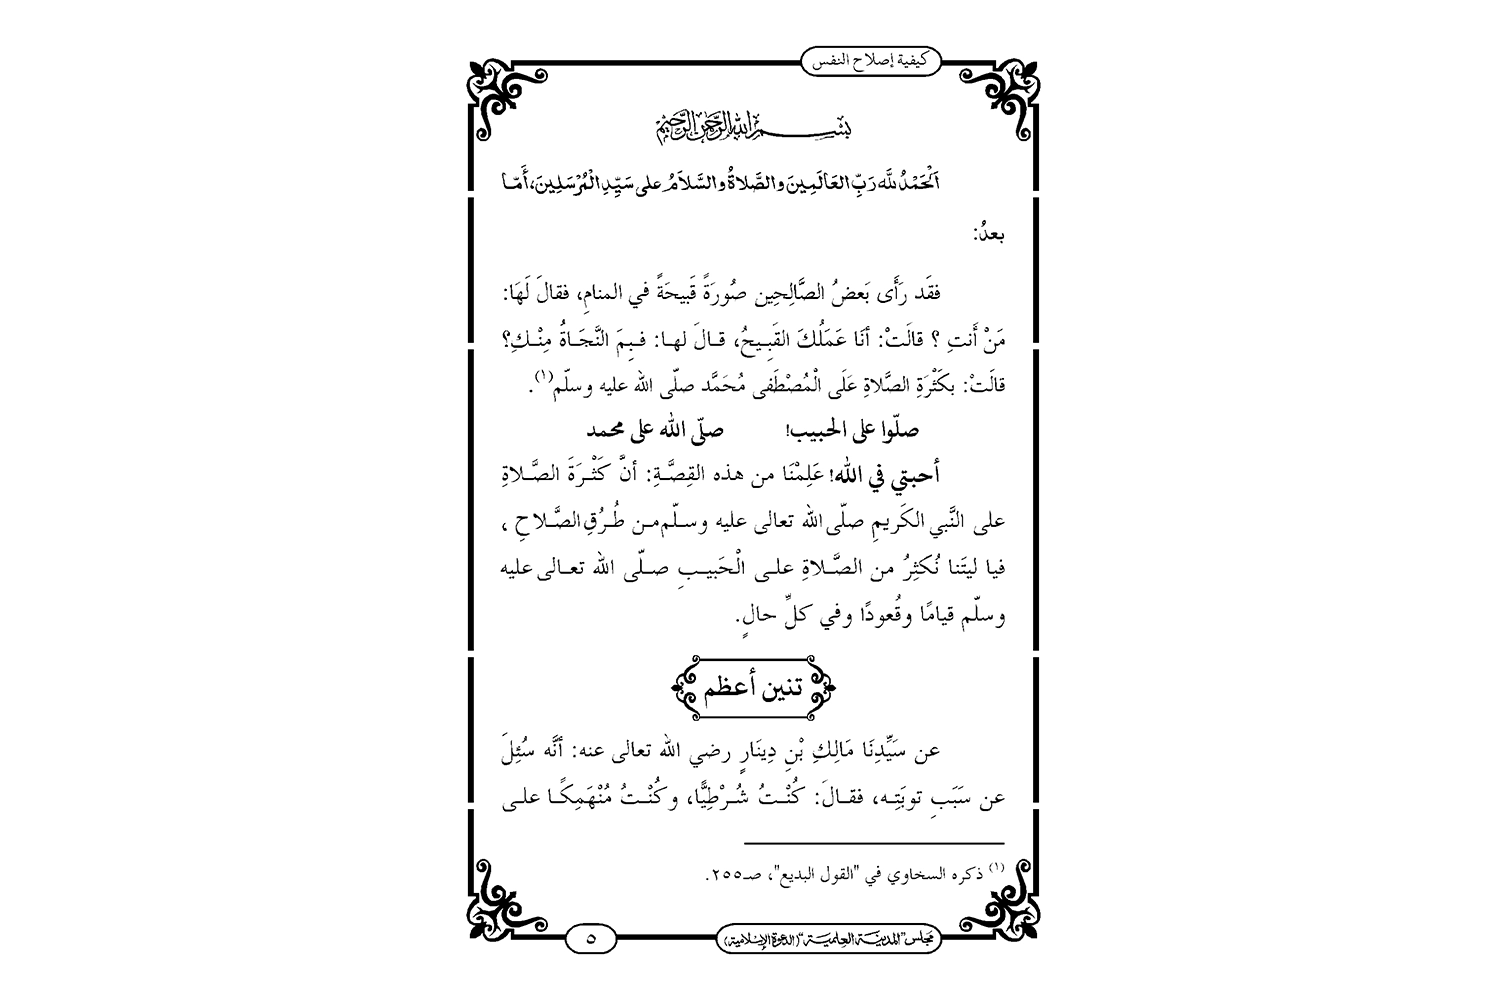 كيفية إصلاح النفس
بسم الله الرحمن الرحيم
اَلْحَمْدُ لله رَبِّ العَالَمِينَ والصَّلاةُ والسَّلاَمُ على سَيِّدِ الْمُرْسَلِينَ، أَمّا
بعدُ:
فقَد رَأَى بَعضُ الصَّالِحِين صُورَةً قَبيحَةً في المنامِ، فقالَ لَهَا:
مَنْ أَنتِ ؟ قالَتْ: أنَا عَمَلُكَ القَبِيحُ، قالَ لها: فبِمَ النَّجَاةُ مِنْكِ؟
قالَتْ: بكَثْرَةِ الصَّلاةِ عَلَى الْمُصْطَفى مُحَمَّد صلّى الله عليه وسلّم(١).
صلّوا على الحبيب! صلّى الله على محمد
أحبتي في الله! عَلِمْنَا من هذه القِصَّةِ: أنَّ كَثْرَةَ الصَّلاةِ
على النَّبي الكَريمِ صلّى الله تعالى عليه وسلّم من طُرُقِ الصَّلاحِ ،
فيا ليتَنا نُكثِرُ من الصَّلاةِ على الْحَبيبِ صلّى الله تعالى عليه
وسلّم قيامًا وقُعودًا وفي كلِّ حالٍ.
تنين أعظم
عن سَيِّدِنَا مَالِكِ بْنِ دِينَارٍ رضي الله تعالى عنه: أنَّه سُئِلَ
عن سَبَبِ توبَتِه، فقالَ: كُنْتُ شُرْطِيًّا، وكُنْتُ مُنْهَمِكًا على
(١) ذكره السخاوي في "القول البديع"، صـ٢٥٥.
مجلس "المدينة العلمية" (الدعوة الإسلامية)
٥